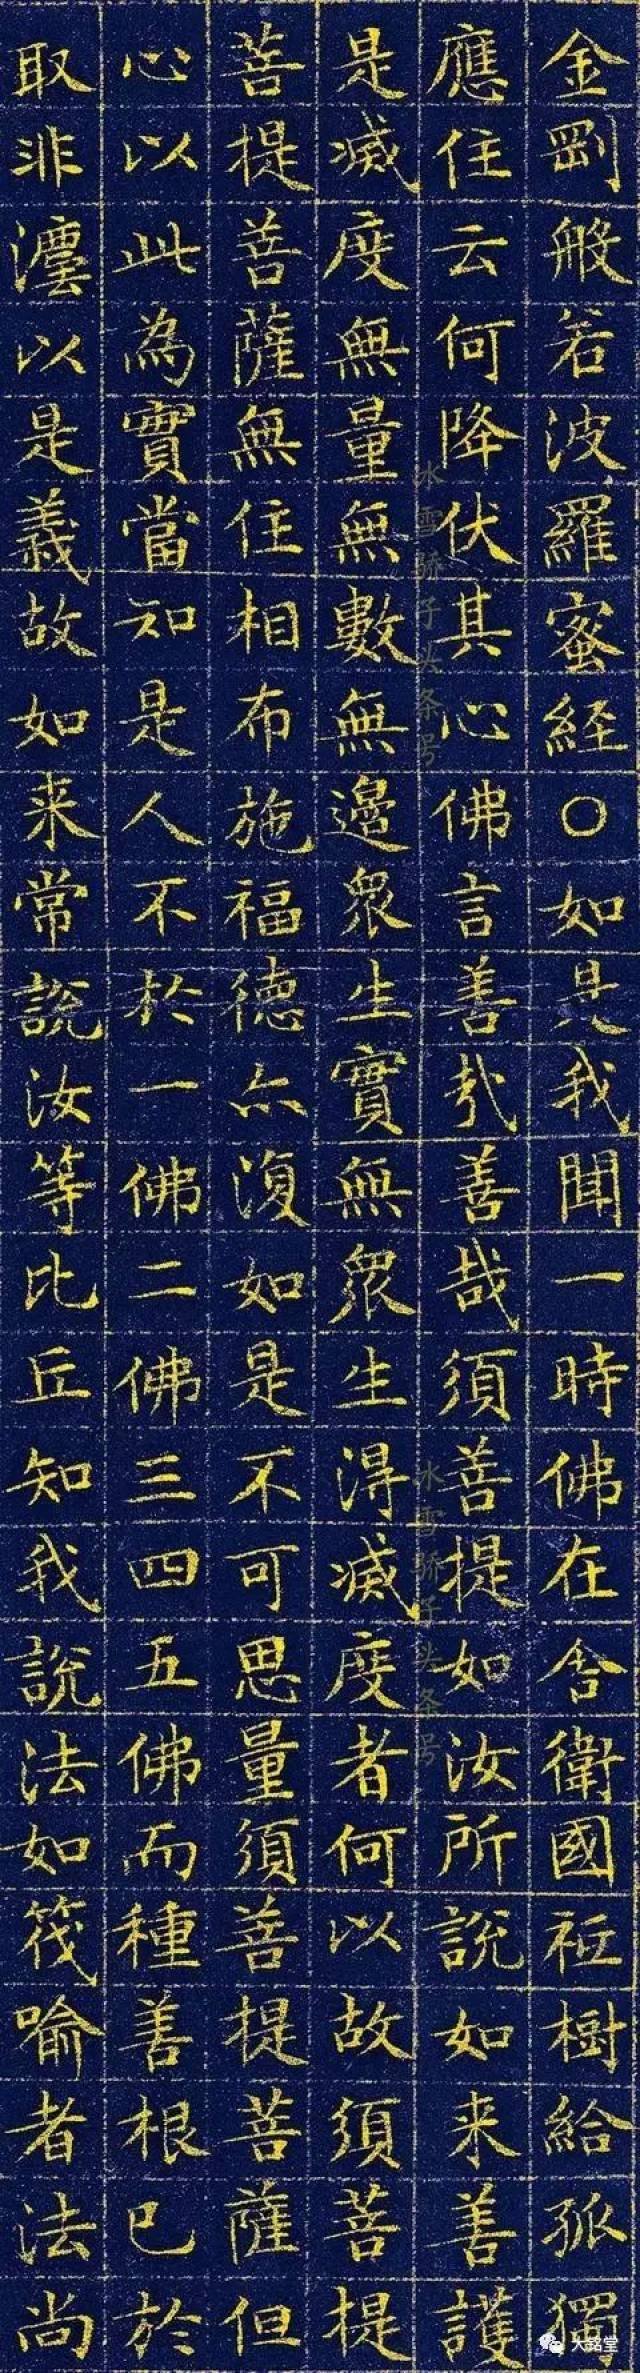 金剛般若波羅蜜経〇如是我聞一時佛在舍衛國祇樹給孤獨
應住云何降伏其心佛言善哉善哉須菩提如汝所說如来善護
是滅度無量無數無邊衆生實無衆生得滅度者何以故須菩提
菩提菩薩無住相布施福德亦復如是不可思量須菩提菩薩但
心以此為實當知是人不於一佛二佛三四五佛而種善根已於
取非灋以是義故如来常說汝等比丘知我說法如筏喻者法尚
冰雪骄子头条号
冰雪骄子头条号
大铭堂